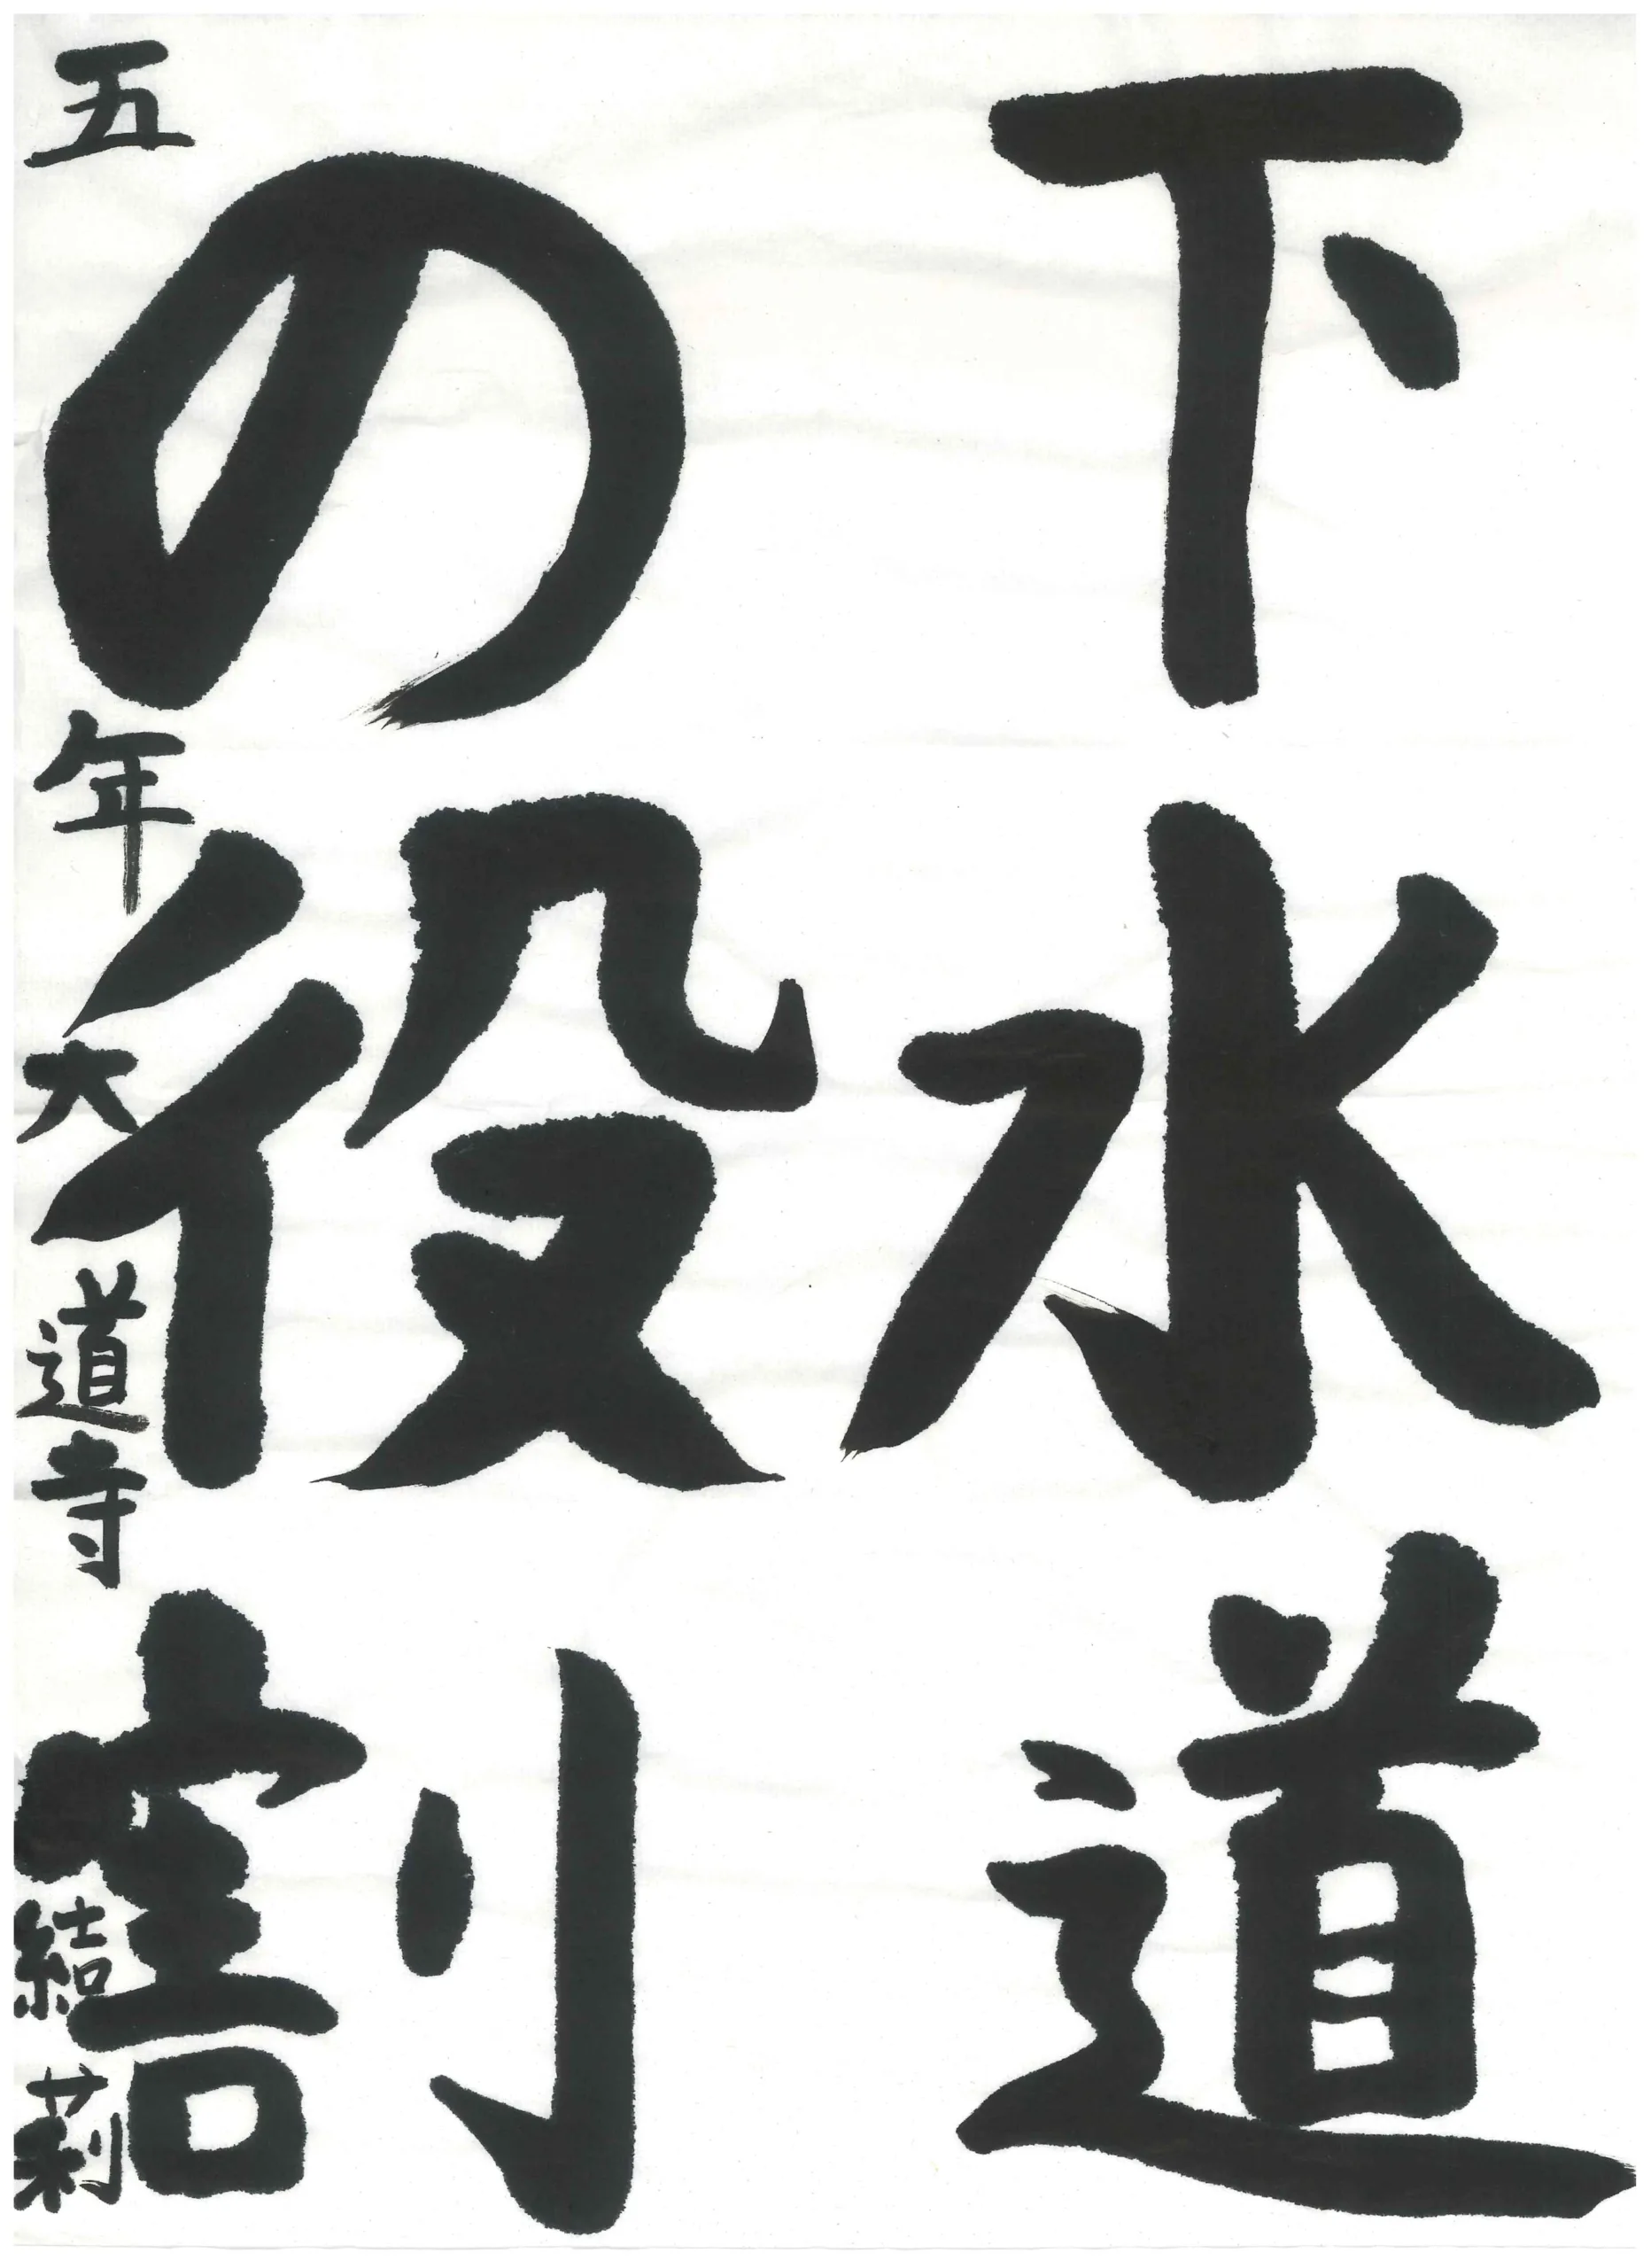 下水道
の役割
五年 大道寺結莉